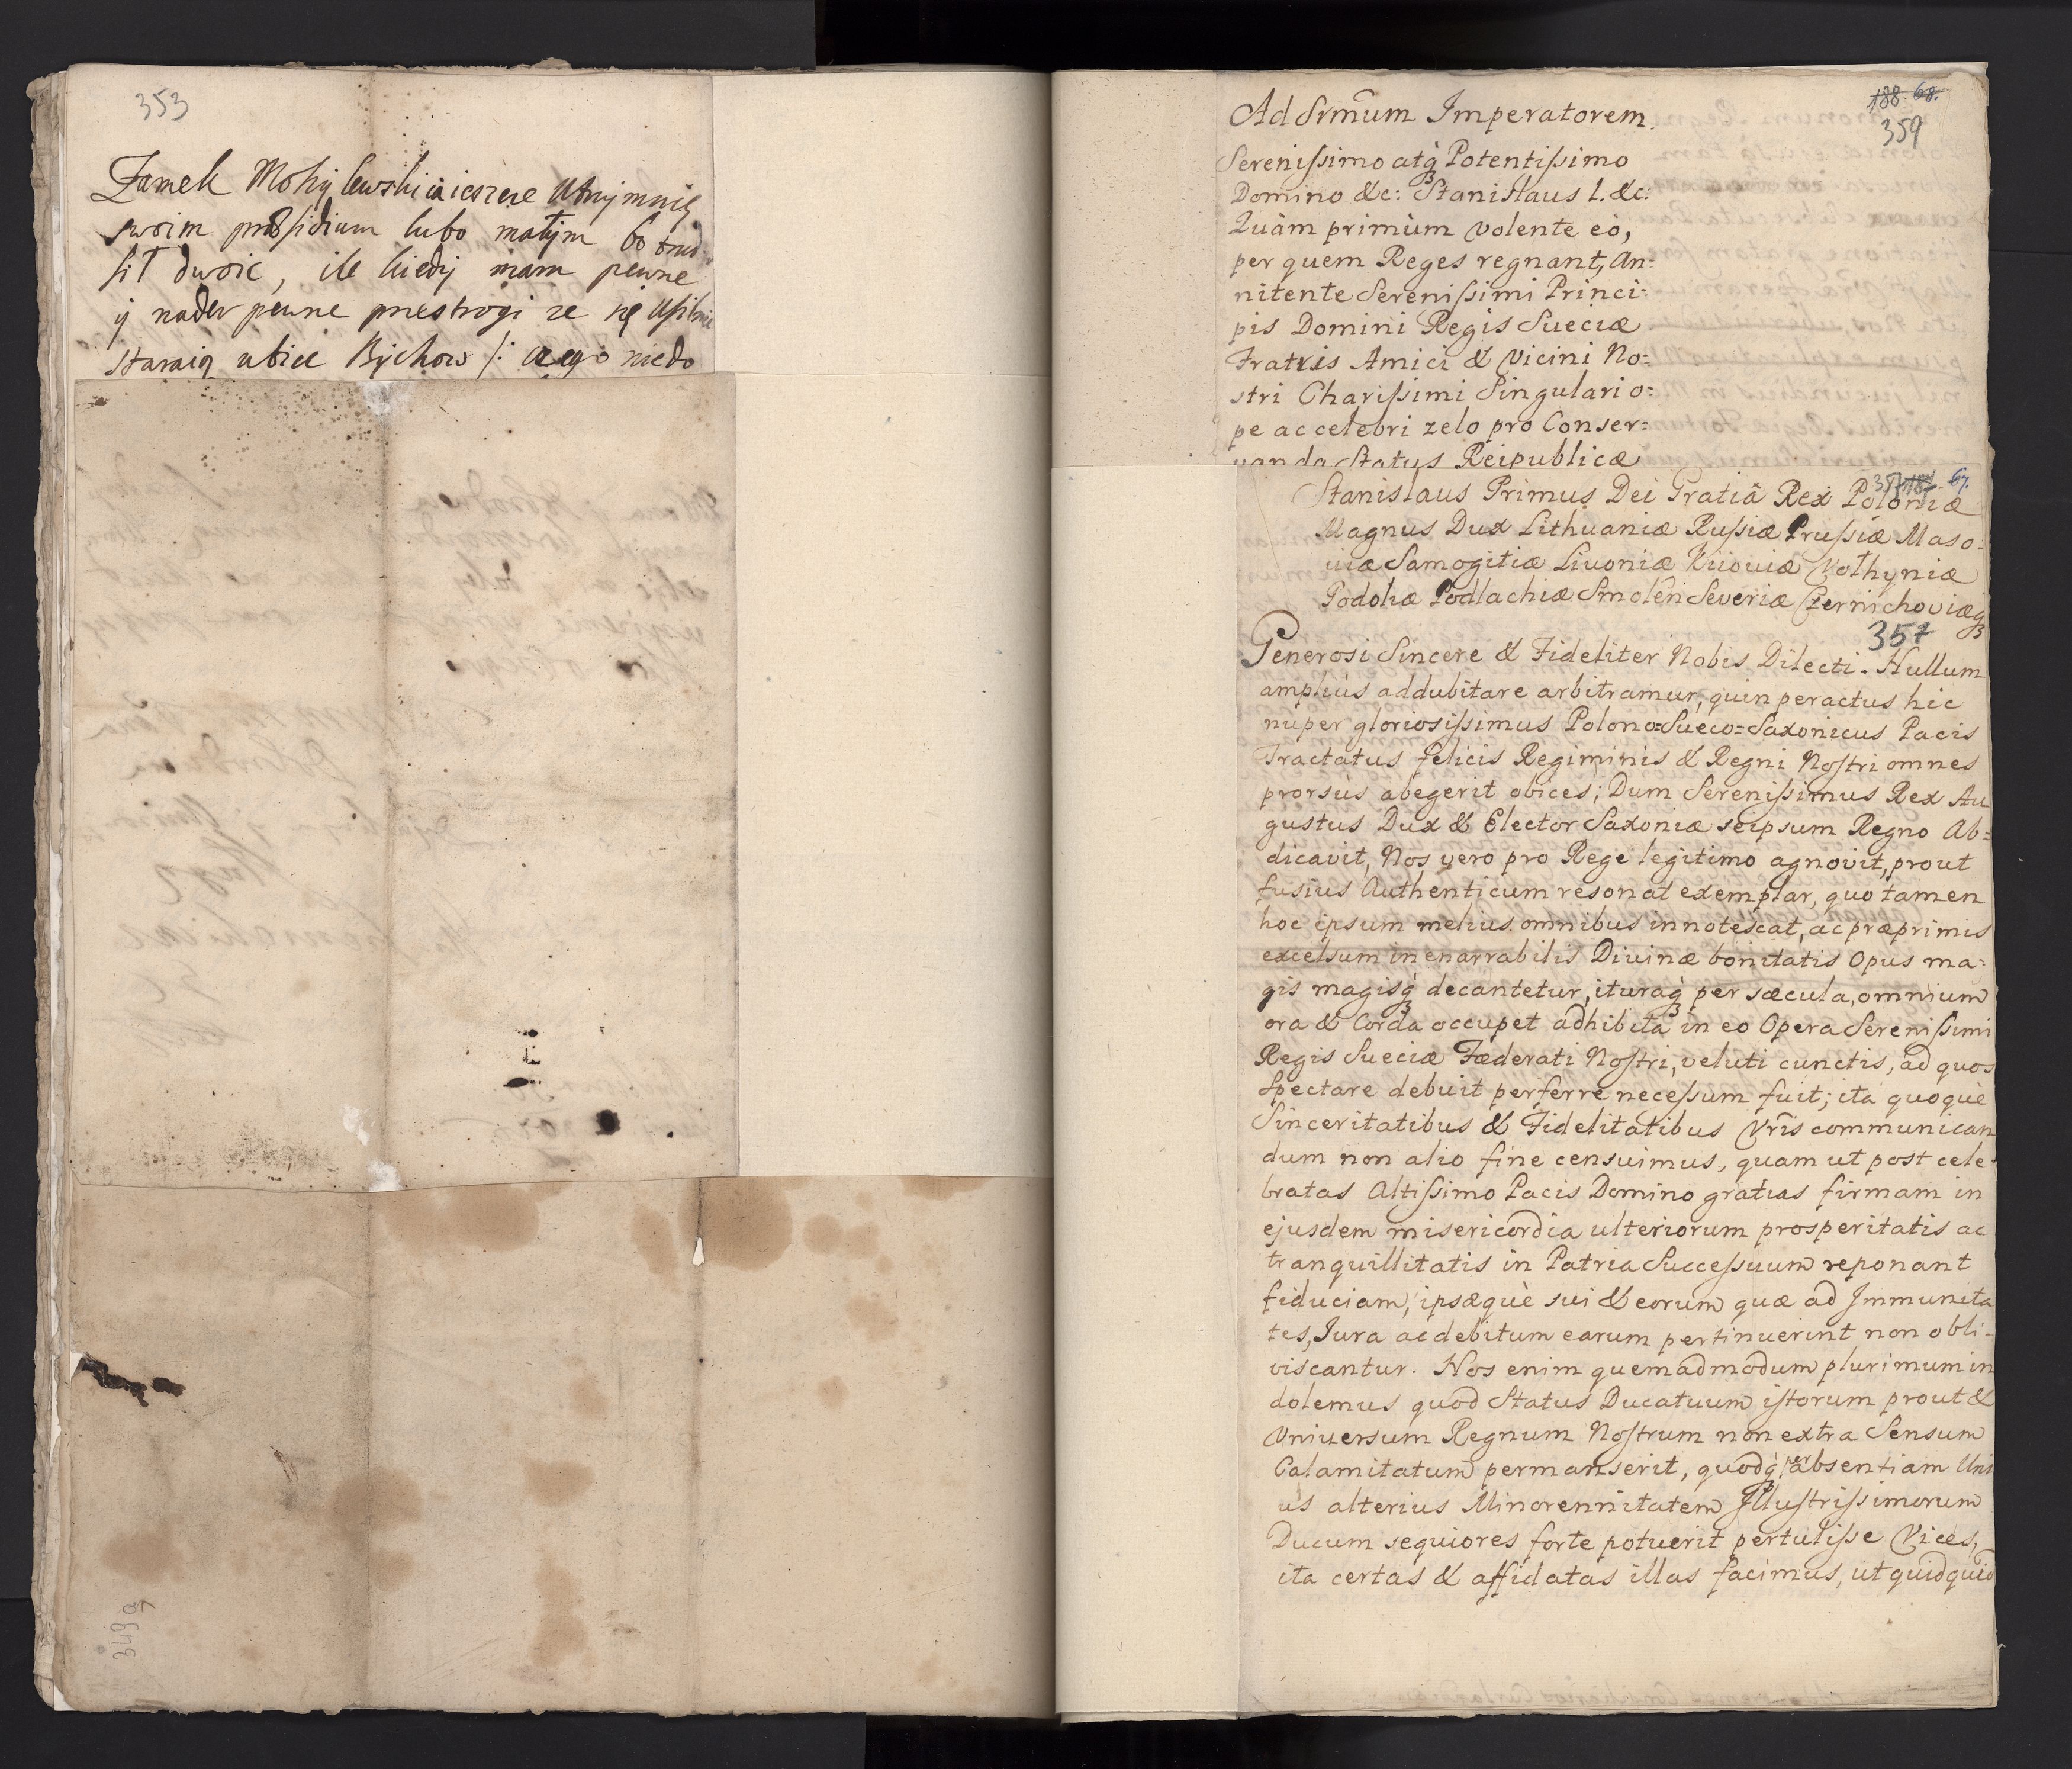 353
Zamek Mohylewski ieszcze utrzymuię
swoim præsidium lubo małym bo
sit dwoie, ile kiedy mam pewne
y nader pewne przestrogi ze się usilnie
staraią ubiec Bychow /: czego niedo
349a
188 68.
359
Ad Srm̃um Imperatorem.
Serenissimo atq̀ Potentissimo
Domino &c: Stanislaus I. &c:
Quàm primùm volente eò,
per quem Reges regnant, An=
nitente Serenissimi Princi=
pis Domini Regis Sueciæ
Fratris Amici & Vicini No=
stri Charissimi Singulari o=
pe ac celebri zelo pro Conser=
vanda Status Reipublicæ
357 187. 67.
Stanislaus Primus Dei Gratiâ Rex Poloniæ
Magnus Dux Lithuaniæ Russiæ Prussiæ Maso=
uiæ Samogitiæ Liuoniæ Kiiouiæ Volhyniæ
Podoliæ Podlachiæ Smolen Severiæ Czernichoviæq
357
Generosi Sincere & Fideliter Nobis Dilecti. Nullum
ampliùs addubitare arbitramur, quin peractus hic
nùper gloriosissimus Polono=Sueco=Saxonicus Pacis
Tractatus felicis Regiminis & Regni Nostri omnes
prorsùs abegerit obices; Dum Serenissimus Rex Au
gustus Dux & Elector Saxoniæ seipsum Regno Ab=
dicavit, Nos vero pro Rege legitimo agnovit, prout
fusius Authenticum resonat exemplar, quo tamen
hoc ipsum melius omnibus innotescat, ac præprimis
excelsum inenarrabilis Diuinæ bonitatis Opus ma=
gis magisq̀ decantetur, ituraq̀ per sæcula, omnium
ora & Corda occupet adhibita in eo Opera Serenissimi
Regis Sueciæ Fœderati Nostri, veluti cunctis, ad quos
Spectare debuit perferre necessum fuit; ita quoquè
Sinceritatibus & Fidelitatibus Vr̃is communican
dum non alio fine censuimus, quam ut post cele
bratas Altissimo Pacis Domino gratias firmam in
ejusdem misericordia ulteriorum prosperitatis ac
tranquillitatis in Patria Successuum reponant
fiduciam, ipsæquè sui & eorum quæ ad Immunita
tes, Jura ac debitum earum pertinuerint non obli=
viscantur. Nos enim quemadmodum plurimum in
dolemus quod Status Ducatuum istorum prout &
Vniuersum Regnum Nostrum non extra Sensum
Calamitatum permanserit, quodq̀ per absentiam Uni
us alterius Minorennitatem Illustrissimorum
Ducum sequiores forte potuerit pertulisse Vices,
ita certas & affidatas illas facimus, ut quidquid